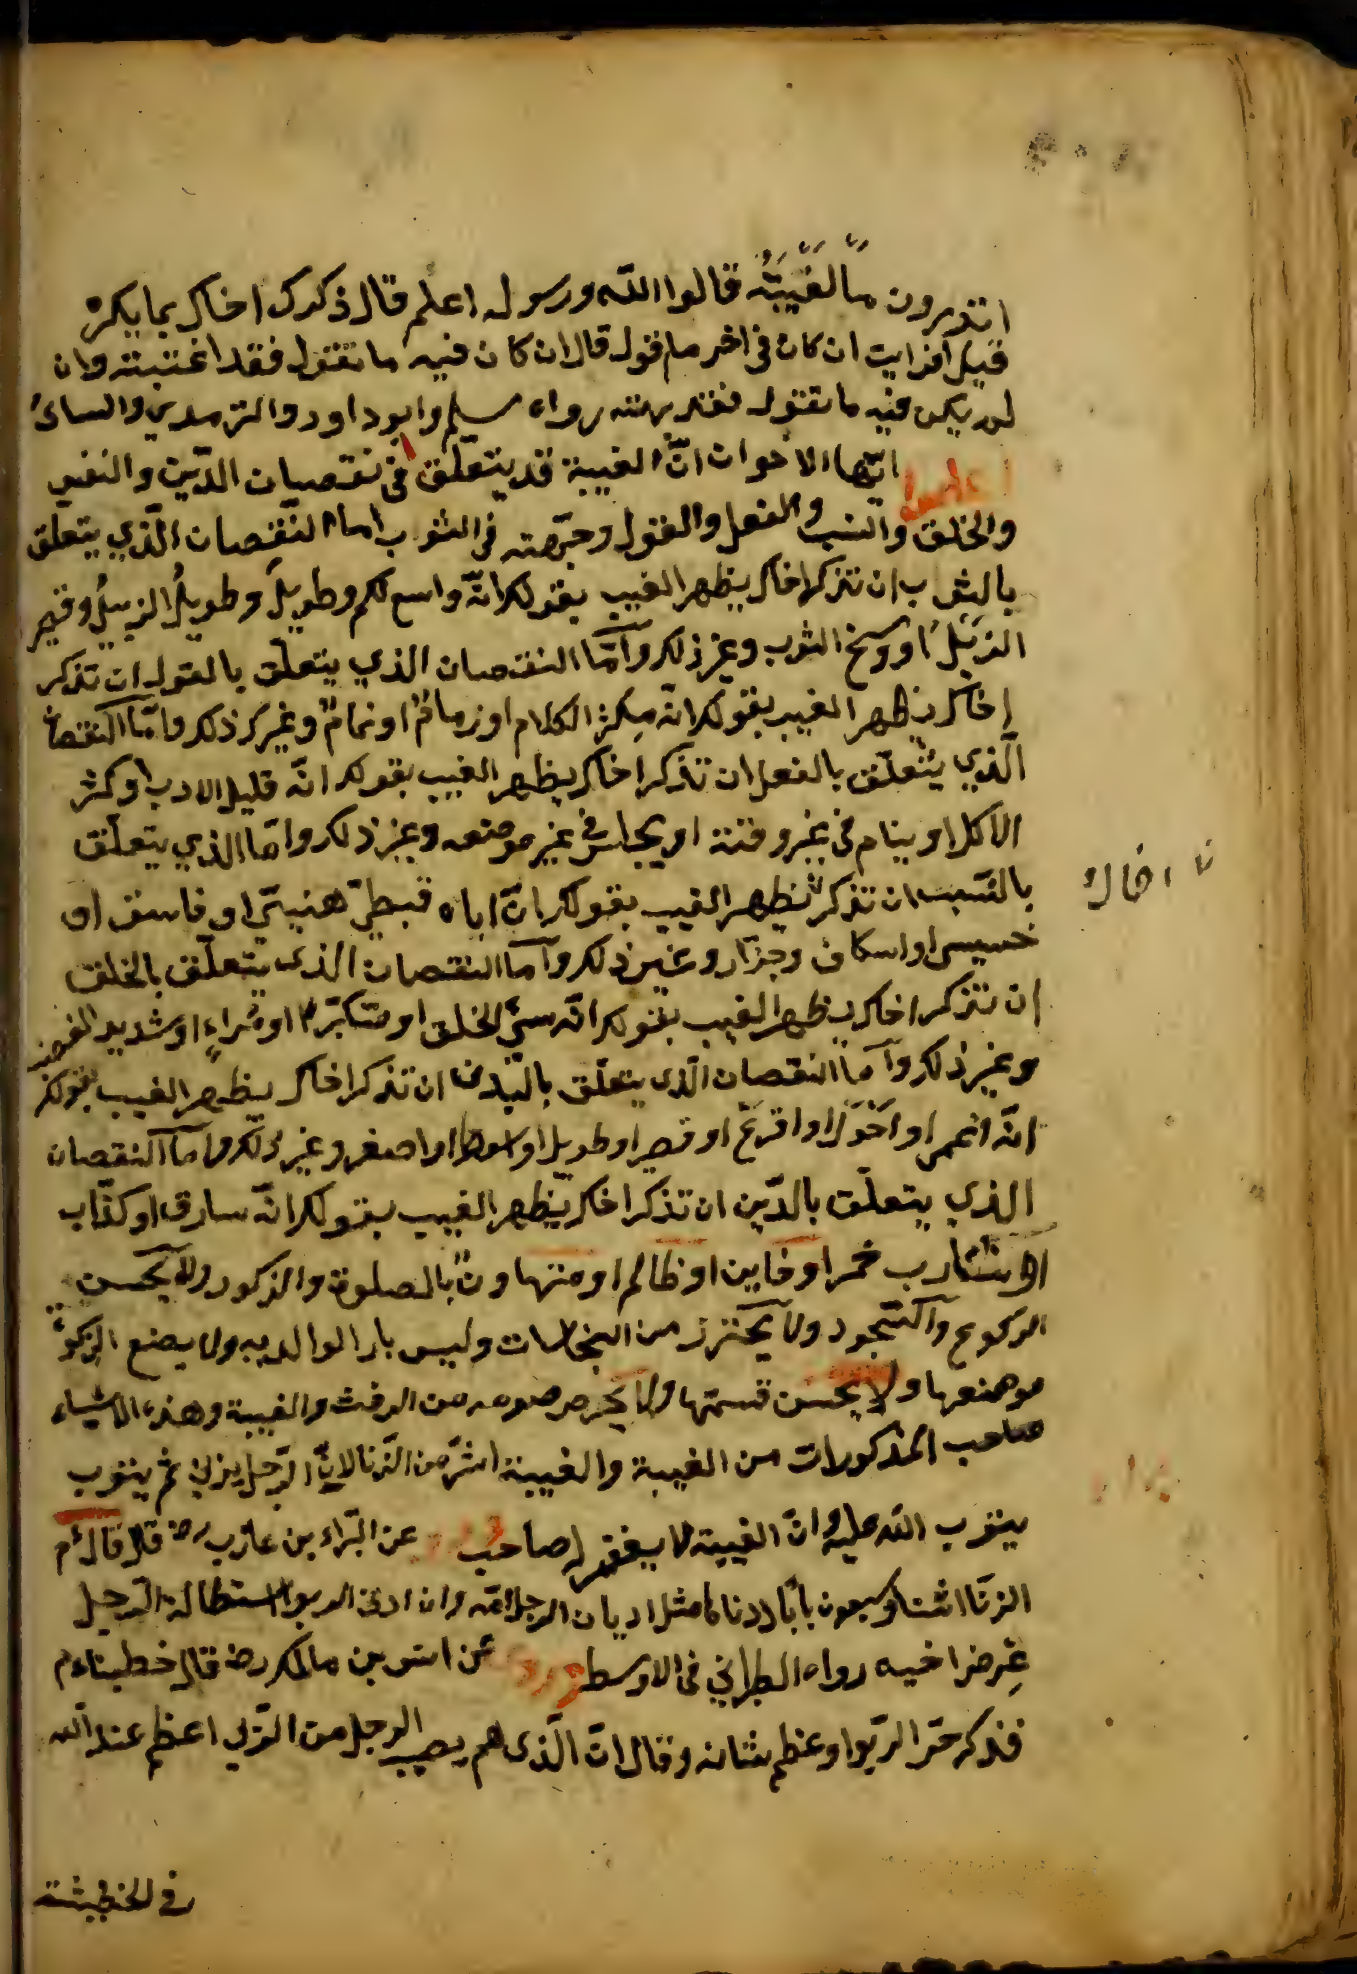 اتدرون ما الغيبة قالوا الله ورسوله اعلم قال ذكرك اخاك بما يكره
قيل افرايت ان كان في اخر ما قول قال ان كان فيه ما تقول فقد اغتبته وان
لم يكن فيه ما تقول فقد بهته رواه مسلم وابو داود والترمدي والنسائ
اعلموا ايّها الاخوان انّ الغيبة قد يتعلّق في نقصيان الدّين والنفس
والخلق والنسب والفعل والقول وجهته في الثوب اما النّقصان الّذي يتعلّق
بالثوب ان تذكر اخاك بظهر الغيب بقولك انّه واسع لكم وطويل وطويل الزبيل وقصير
الذيل او وسخ الثوب وغير ذلك وامّا النقصان الذي يتعلّق بالقول ان تذكر
اخاك بظهر الغيب بقولك انّه مكثر الكلام او زمام او نمام وغير ذلك وامّا النقصان
الّذي يتعلّق بالفعل ان تذكر اخاك بظهر الغيب بقولك انّه قليل الادب او كثر
الاكل او ينام في غير وقته او يجلس في غير موضعه وغير ذلك وامّا الذي يتعلّق
بالنّسب ان تذكر بظهر الغيب بقولك انّ اباه قبطيّ او فاسق او
اخاك
خسيس او اسكاف وجزّار وغير ذلك وامّا النقصان الذي يتعلّق بالخلق
ان تذكر اخاك بظهر الغيب بقولك انّه سيّئ الخلق او متكبّر او مُراءٍ او شديد الغضب
وغير ذلك وامّا النقصان الّذي يتعلّق بالبدن ان تذكر اخاك بظهر الغيب بقولك
انّه اعمى او احول او اقرع او قصير او طويل او اسود او اصفر وغير ذلك وامّا النقصان
الذي يتعلّق بالدّين ان تذكر اخاك بظهر الغيب بقولك انّه سارق او كذّاب
او شارب خمر او خاين او ظالم او متهاون بالصلوة والذكور ولا يحسن
الركوع والسّجود ولا يحترز من النجاسات وليس بار الوالديه ولا يضع الزكوة
موضعها ولا يحسن قسمتها ولا يحرص صومه من الرفث والغيبة وهذه الاشياء
صاحب المذكورات من الغيبة والغيبة اشرّ من الزّنا لانّ الرّجل يزني ثم يتوب
يتوب الله عليه وانّ الغيبة لا يغفر لصاحب عن البّراء بن عازب رض قال قال م
الرّبا اثنا وسبعون بابًا ادناها مثل اتيان الرجل امّه وان ادنى الربوا استطالة الرّجل
عِرض اخيه رواه الطبراني في الاوسط عن انس بن مالك رض قال خطبنا م
فذكر حرّ الرّبوا وعظم شانه وقال انّ الّذي هم يصيب الرجل من الرّبي اعظم عند الله
في الخطيئة